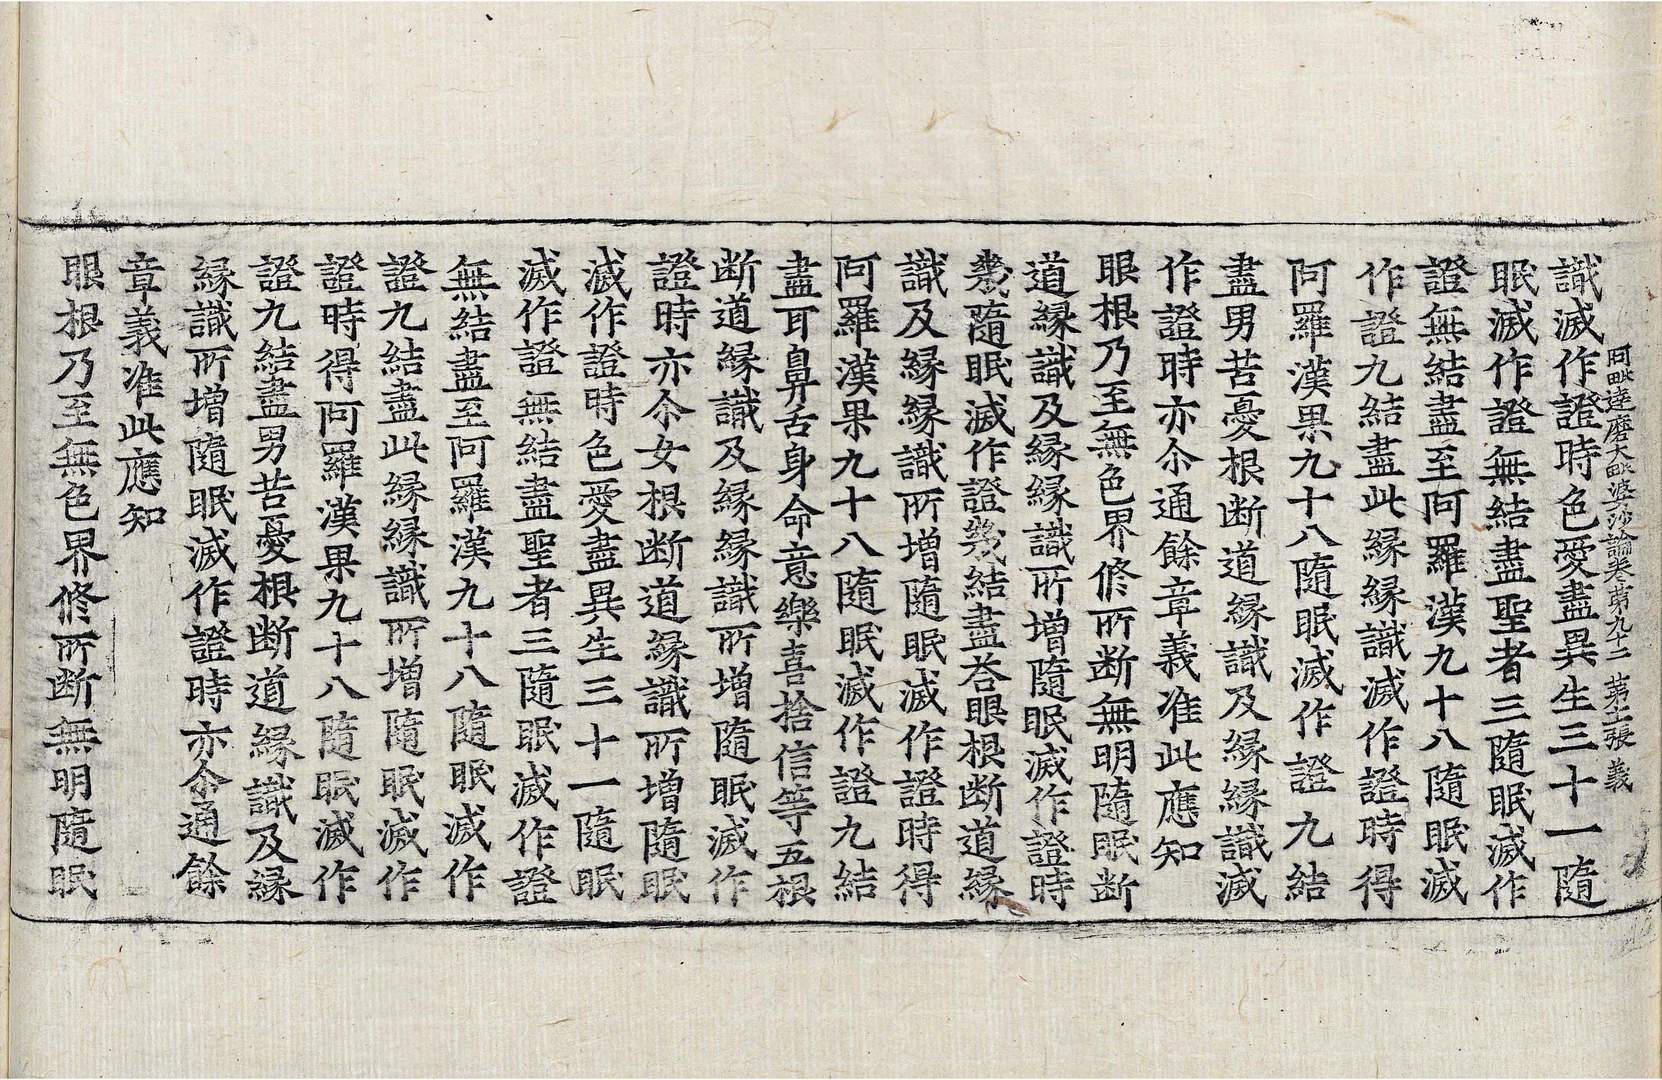 阿毗達磨大毗婆沙論卷第九十二 第二張 義
識滅作證時色愛盡異生三十一隨
眠滅作證無結盡聖者三隨眠滅作
證無結盡至阿羅漢九十八隨眠滅
作證九結盡此緣緣識滅作證時得
阿羅漢果九十八隨眠滅作證九結
盡男苦憂根断道緣識及緣緣識滅
作證時亦尒通餘章義准此應知
眼根乃至無色界修所断無明隨眠断
道緣識及緣緣識所增隨眠滅作證時
幾隨眠滅作證幾結盡荅眼根断道緣
識及緣緣識所增隨眠滅作證時得
阿羅漢果九十八隨眠滅作證九結
盡耳鼻舌身命意樂喜捨信等五根
断道緣識及緣緣識所增隨眠滅作
證時亦尒女根断道緣識所增隨眠
滅作證時色愛盡異生三十一隨眠
滅作證無結盡聖者三隨眠滅作證
無結盡至阿羅漢九十八隨眠滅作
證九結盡此緣緣識所增隨眠滅作
證時得阿羅漢果九十八隨眠滅作
證九結盡男苦憂根断道緣識及緣
緣識所增隨眠滅作證時亦尒通餘
章義准此應知
眼根乃至無色界修所断無明隨眠